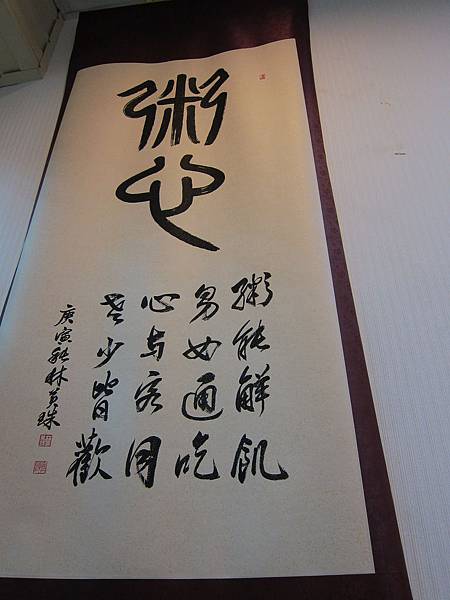 粥心
粥能解飢
男女通吃
心与客同
老少皆歡
庚寅秋林珠